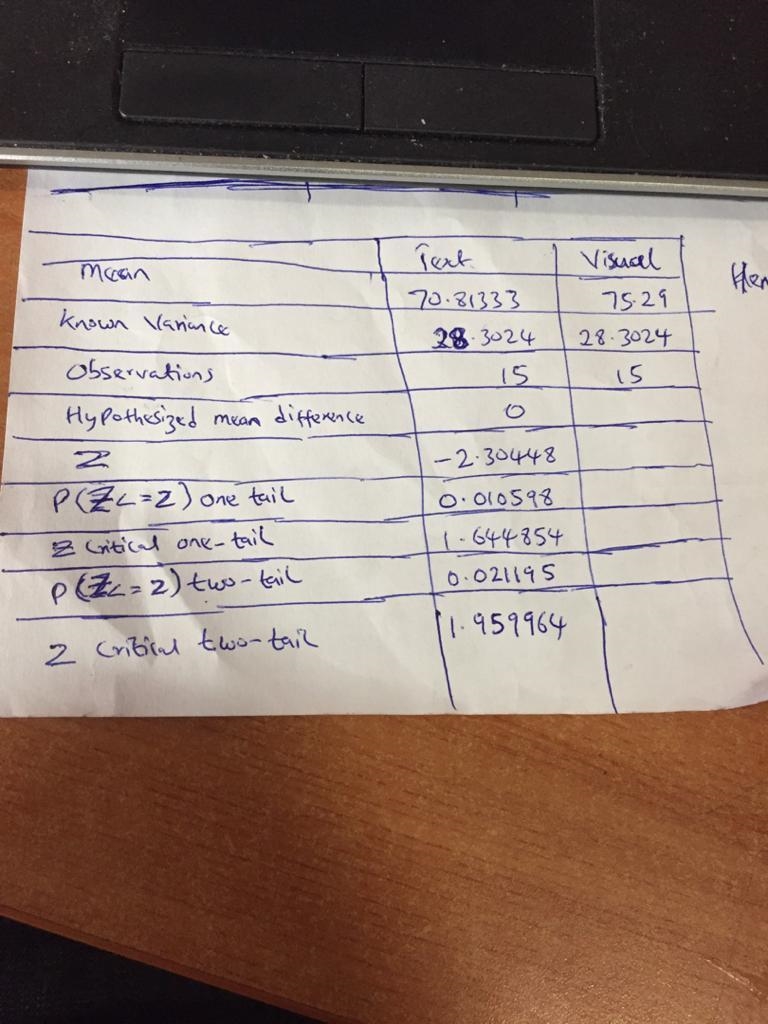 Text Visual
Mean 70.81333 75.29
Known Variance 28.3024 28.3024
Observations 15 15
Hypothesized mean difference 0
Z -2.30448
P(Z<=z) one tail 0.010598
z Critical one-tail 1.644854
P(Z<=z) two-tail 0.021195
z Critical two-tail 1.959964